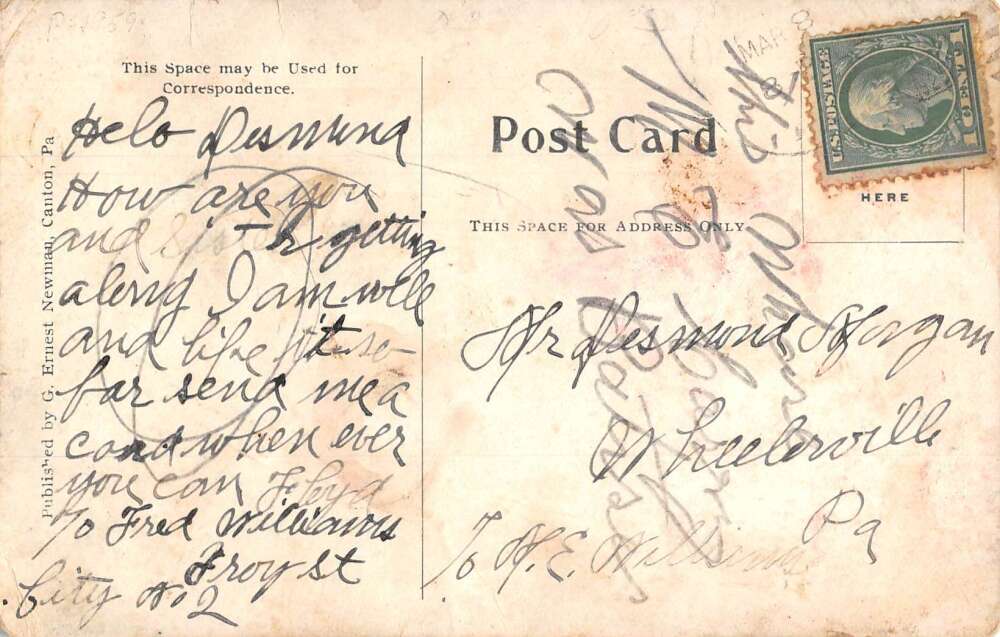 This Space may be Used for
Correspondence.
Helo Desmond
How are you
and sister getting
along I am well
and like it so
far send me a
card when ever
you can Floyd
℅ Fred Williams
Troy st
City No 2
Published by G. Ernest Newman, Canton, Pa
Post Card
THIS SPACE FOR ADDRESS ONLY
MAR
8
U.S. POSTAGE
1 CENT 1
HERE
Mr Desmond Morgan
Wheelerville
Pa
℅ H. E. Williams